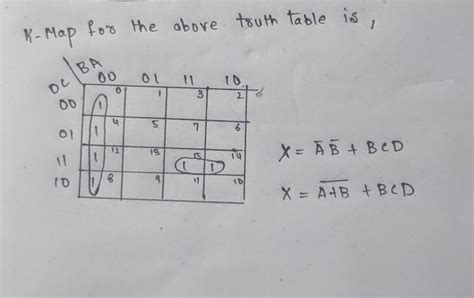 K-Map for the above truth table is,
BA
DC 00 01 11 10
00 1 0 1 3 2
01 1 4 5 7 6
11 1 12 13 15 1 1 14
10 1 8 9 11 10
X = A̅ B̅ + BCD
X = \overline{A+B} + BCD